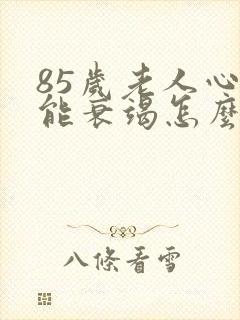 85歲老人心
能衰竭怎麼
八條看雪